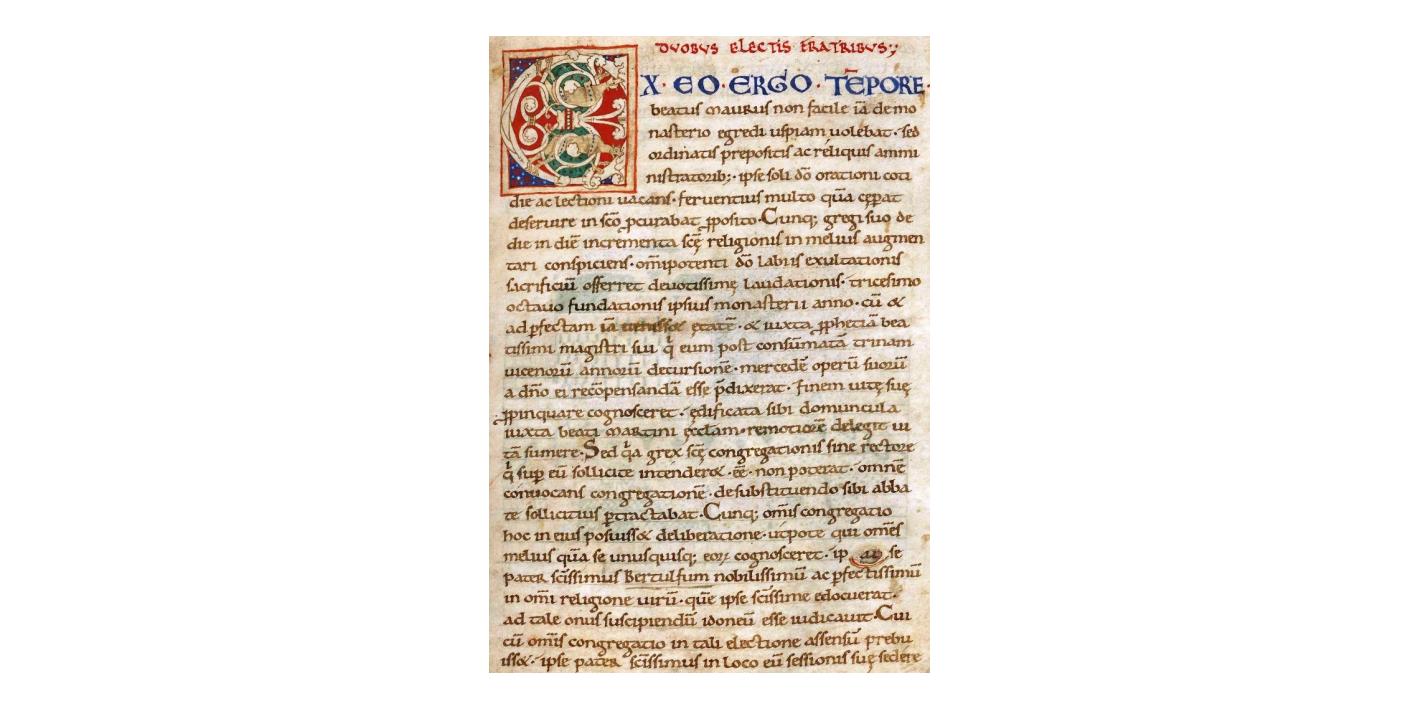 DUOBUS ELECTIS FRATRIBUS;
EX · EO · ERGO · TE̅PORE ·
beatus maurus non facile ia̅ de mo
nasterio egredi uspiam uolebat · sed
ordinatis prepositis ac reliquis ammi
nistratorib; · ipse soli do̅ orationi coti
die ac lectioni uacans · feruentius multo qua̅ cęp̅at
deseruire in sc̅o p̲curabat ꝓposito. Cunq; gregi suo de
die in die̅ incrementa sc̅ę religionis in melius augmen
tari conspiciens · om̅ipotenti do̅ labiis exultationis
sacrificiu̅ offerret deuotissimę laudationis · tricesimo
octauo fundationis ipsius monasterii anno · cu̅ &
ad ꝑfectam ia̅ uenisset etate̅ · & iuxta ꝓphetia̅ bea
tissimi magistri sui q̍ eum post consu̅mata̅ trinam
uicenoru̅ annoru̅ decursione̅ · mercede̅ operu̅ suoru̅
a dn̅o ei reco̅pensanda̅ esse p̅dixerat · finem uitę suę
ꝓpinquare cognosceret · ędificata sibi domuncula
iuxta beati martini ęccl̅am · remotiore̅ delegit ui
ta̅ sumere · Sed q̍a grex sc̅ę congregationis sine rectore
q̍ sup̲ eu̅ sollicite intender& · ee̅ · non poterat · omne̅
conuocans congregatione̅ · de substituendo sibi abba
te sollicitius ꝑtractabat · Cunq; om̅is congregatio
hoc in eius posuiss& deliberatione · utpote qui om̅es
melius qua̅ se unusquisq; eoꝝ cognosceret · ip au se
pater sc̅issimus Bertulfum nobilissimu̅ ac ꝑfectissimu̅
in om̅i religione uiru̅ · que̅ ipse sc̅issime edocuerat ·
ad tale onus suscipiendu̅ idoneu̅ esse iudicauit · Cui
cu̅ om̅is congregatio in tali electione assensu̅ prebu
iss& · ipse pater sc̅issimus in loco eu̅ sessionis suę sedere